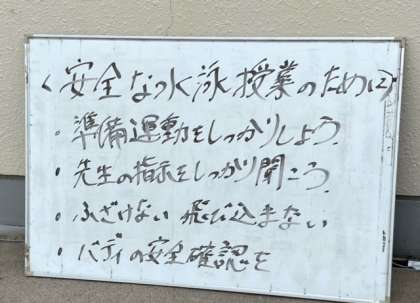 〈安全な水泳授業のために〉
・準備運動をしっかりしよう.
・先生の指示をしっかり聞こう.
・ふざけない 飛び込まない
・バディの安全確認を